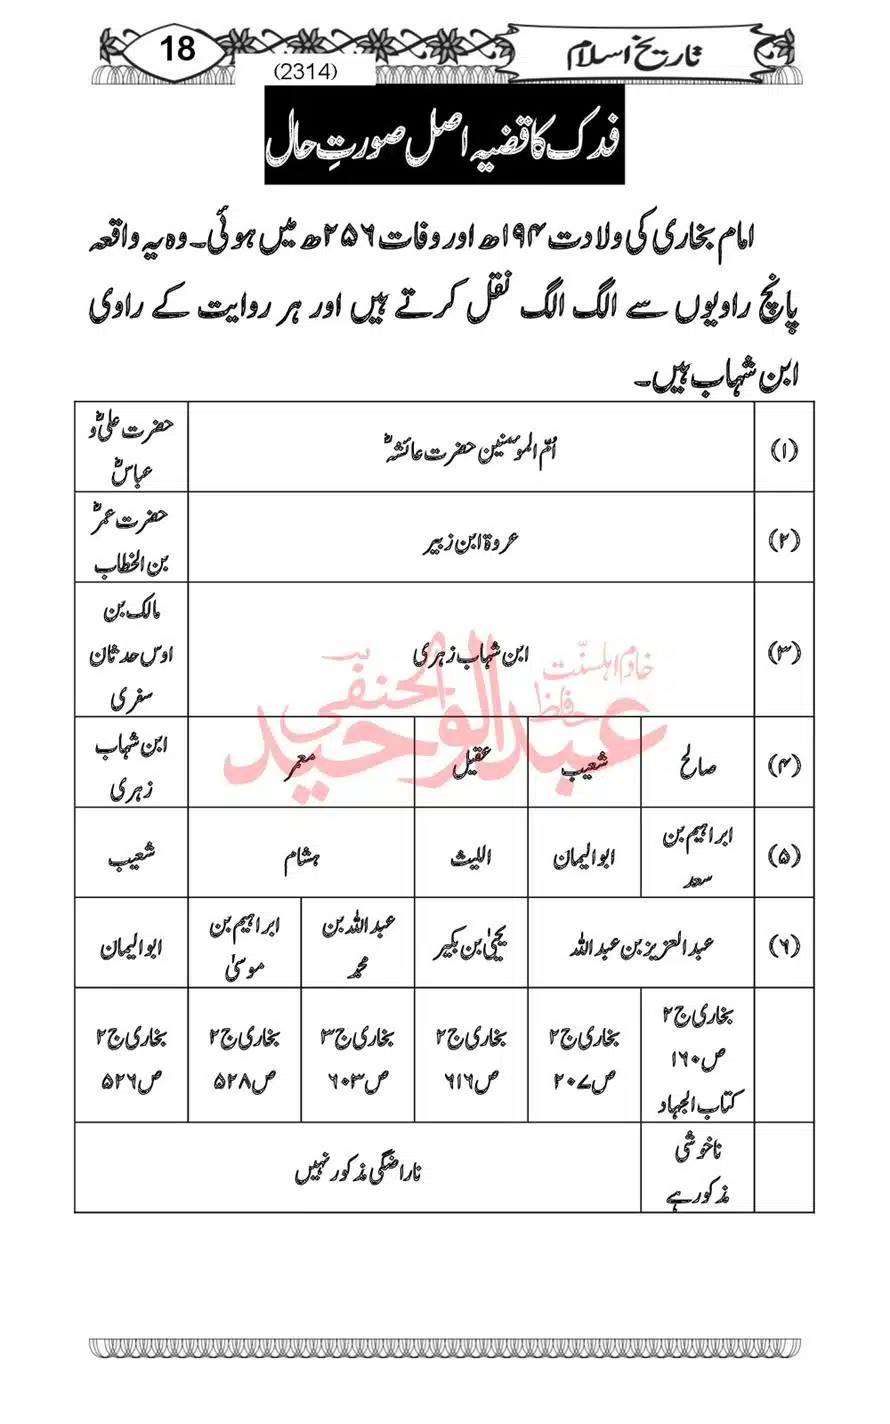 تاریخ اسلام
18
(2314)
فدک کا قضیہ اصل صورتِ حال
امام بخاری کی ولادت ۱۹۴ھ اور وفات ۲۵۶ھ میں ہوئی۔ وہ یہ واقعہ
پانچ راویوں سے الگ الگ نقل کرتے ہیں اور ہر روایت کے راوی
ابن شہاب ہیں۔
(۱) اُمّ المومنین حضرت عائشہؓ حضرت علیؓ و
عباسؓ
(۲) عروۃ ابن زبیر حضرت عمرؓ
بن الخطاب
(۳) ابن شہاب زہری مالک بن
اوس حدثان
سفری
خادم اہلسنّت
حافظ عبدالوحید الحنفی
(۴) صالح شعیب عقیل معمر ابن شہاب
زہری
(۵) ابراہیم بن
سعد ابوالیمان اللیث ہشام شعیب
(۶) عبدالعزیز بن عبداللہ یحییٰ بن بکیر عبداللہ بن
محمد ابراہیم بن
موسیٰ ابوالیمان
بخاری ج۲
ص۱۶۰
کتاب الجہاد بخاری ج۲
ص۲۰۷ بخاری ج۲
ص۶۱۶ بخاری ج۳
ص۶۰۳ بخاری ج۲
ص۵۲۸ بخاری ج۲
ص۵۲۶
ناخوشی
مذکور ہے ناراضگی مذکور نہیں